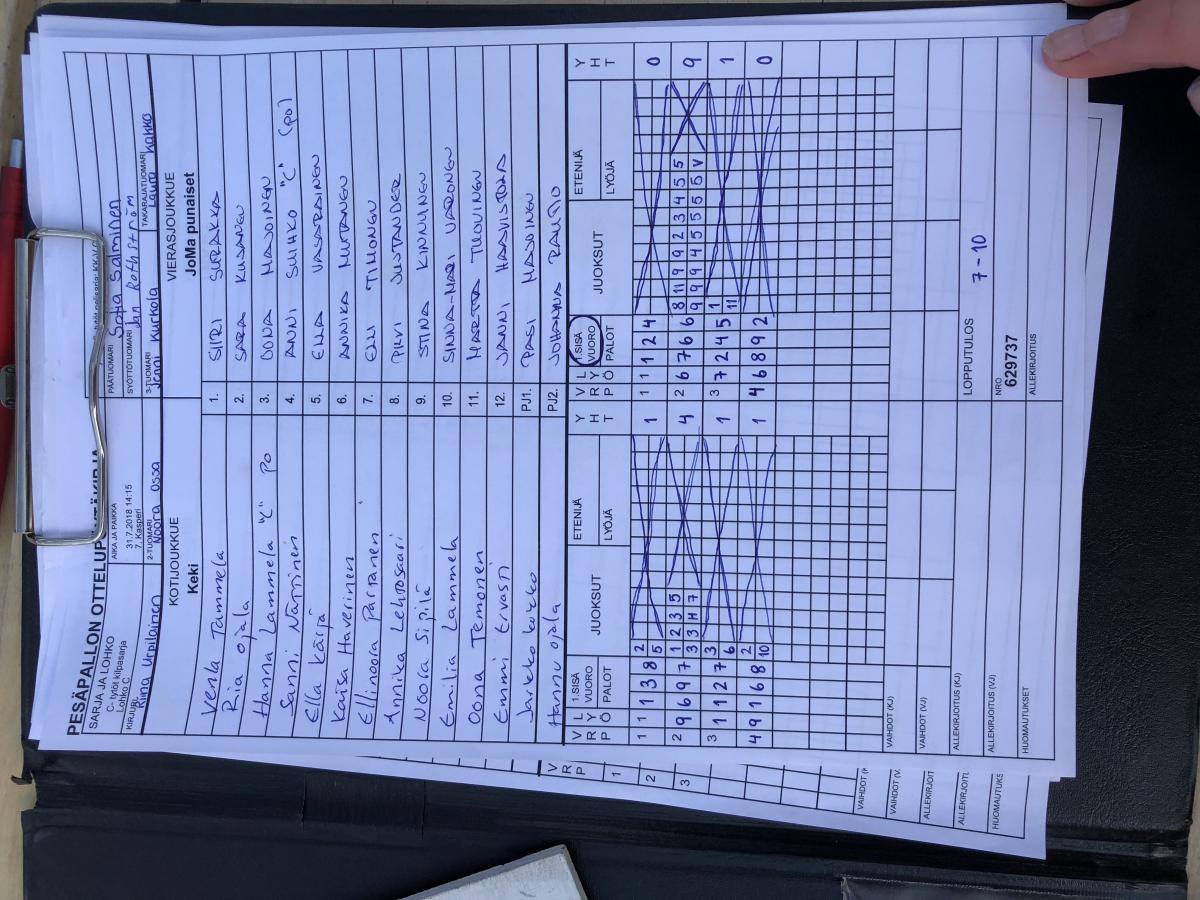 PESÄPALLON OTTELUP
SARJA JA LOHKO
C- tytöt kilpasarja
Lohko C
KIRJURI
Riina Urpilainen
AIKA JA PAIKKA
31.7.2018 14:15
7. Kasperi
2-TUOMARI
Noora Ossa
PÄÄTUOMARI
Sofia Salminen
SYÖTTÖTUOMARI
Jan Rothström
3-TUOMARI
Jenni Kurkola
TAKARAJATUOMARI
Laura Kakko
KOTIJOUKKUE
Keki
VIERASJOUKKUE
JoMa punaiset
Venla Tammela 1. SIIRI SURAKKA
Pia Ojala 2. SARA KUSANEN
Hanna Lammela "C" PO 3. OONA
Sanni Närhinen 4. ANNI SUIHKO "C" (PO)
Ella Kärjä 5. ELLA VASARAINEN
Kaisa Haverinen 6. ANNIKA MUTANEN
Ellinoora Partanen 7. ELLI TIMONEN
Annika Lehtosaari 8. PIRVI
Noora Sipilä 9. STINA KINNUNEN
Emilia Lammela 10. SINNA-MARI
Oona Temonen 11. MARTTA TUOVINEN
Emmi Ervasti 12. JANNI HAAVISTOA
Jarkko PJ1. PASI
Hannu Ojala PJ2. JOHANNA
V R P L Y Ö 1.SISÄ VUORO PALOT JUOKSUT ETENIJÄ LYÖJÄ Y H T V R P L Y Ö 1.SISÄ VUORO PALOT JUOKSUT ETENIJÄ LYÖJÄ Y H T
1 1 1 3 8 2 5 1 1 1 1 2 4 0
2 9 6 9 7 1 2 3 5 4 2 6 7 6 6 8 11 9 9 2 3 4 5 5 9
3 3 H 7 9 9 9 4 5 5 5 5 V
3 1 1 2 7 3 6 1 3 7 2 4 5 1 11 1
4 9 1 6 8 2 10 1 4 6 8 9 2 0
VAIHDOT (KJ)
VAIHDOT (VJ)
LOPPUTULOS
7-10
ALLEKIRJOITUS (KJ)
ALLEKIRJOITUS (VJ)
NRO
629737
HUOMAUTUKSET
ALLEKIRJOITUS
V R P
1
2
3
VAIHDOT (V.
ALLEKIRJOIT
ALLEKIRJOITU
HUOMAUTUKS